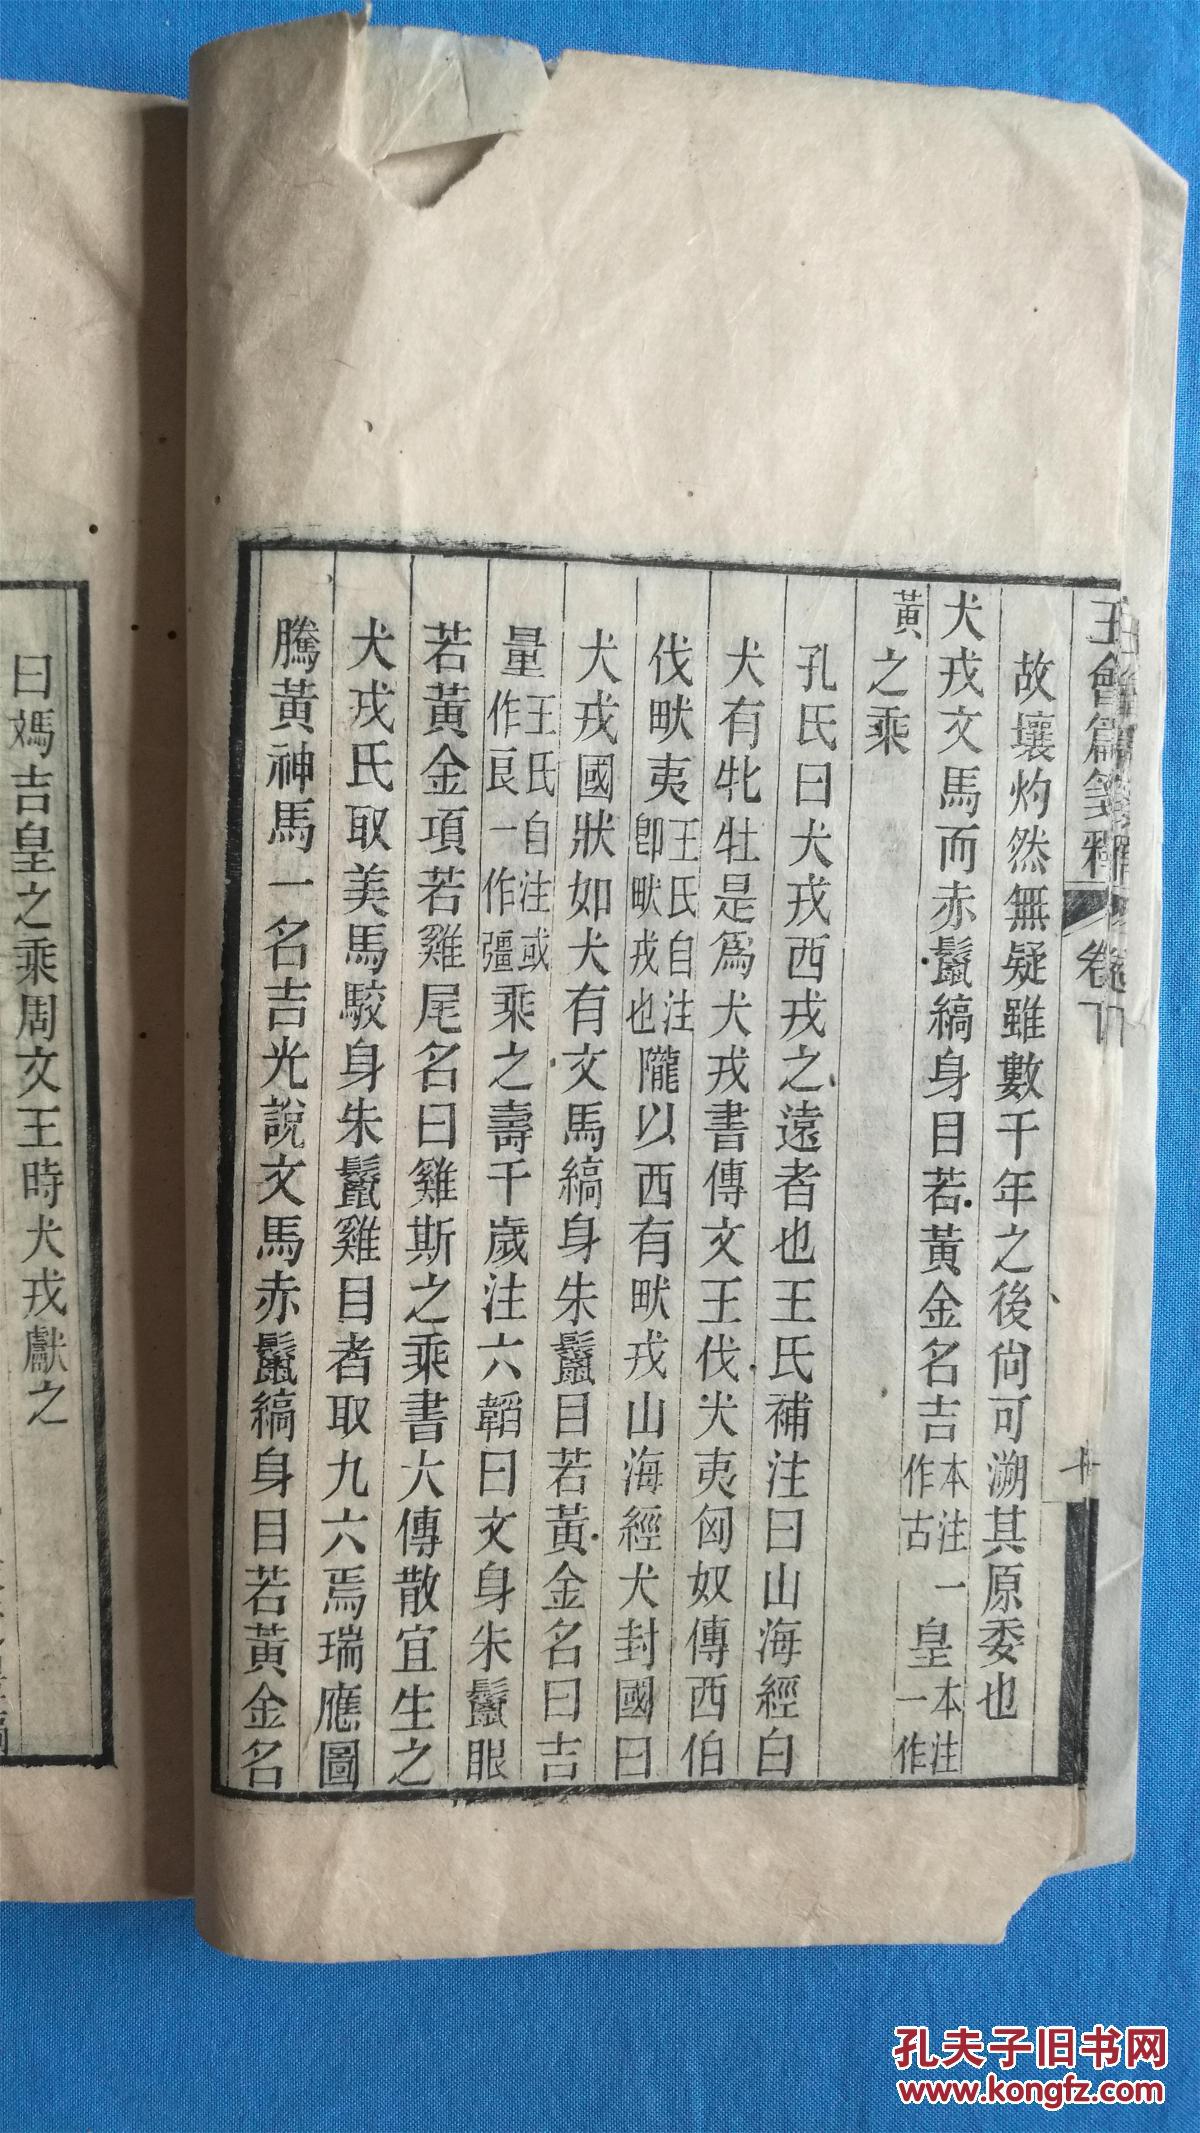 王會篇箋釋 卷下
故壤灼然無疑雖數千年之後尙可溯其原委也
犬戎文馬而赤鬣縞身目若黃金名吉本注一作古皇本注一作
黃之乘
孔氏曰犬戎西戎之遠者也王氏補注曰山海經白
犬有牝牡是爲犬戎書傳文王伐犬夷匈奴傳西伯
伐畎夷王氏自注卽畎戎也隴以西有畎戎山海經犬封國曰
犬戎國狀如犬有文馬縞身朱鬣目若黃金名曰吉
量王氏自注或作良一作彊乘之壽千歲注六韜曰文身朱鬣眼
若黃金項若雞尾名曰雞斯之乘書大傳散宜生之
犬戎氏取美馬駮身朱鬣雞目者取九六焉瑞應圖
騰黃神馬一名吉光說文馬赤鬣縞身目若黃金名
曰媽吉皇之乘周文王時犬戎獻之
孔夫子旧书网
www.kongfz.com